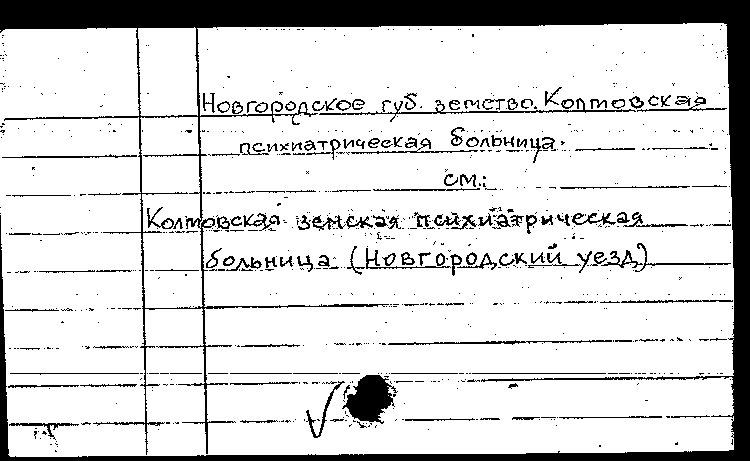 Новгородское губ. земство. Колмовская
психиатрическая больница.
см.:
Колмовская земская психиатрическая
больница (Новгородский уезд)